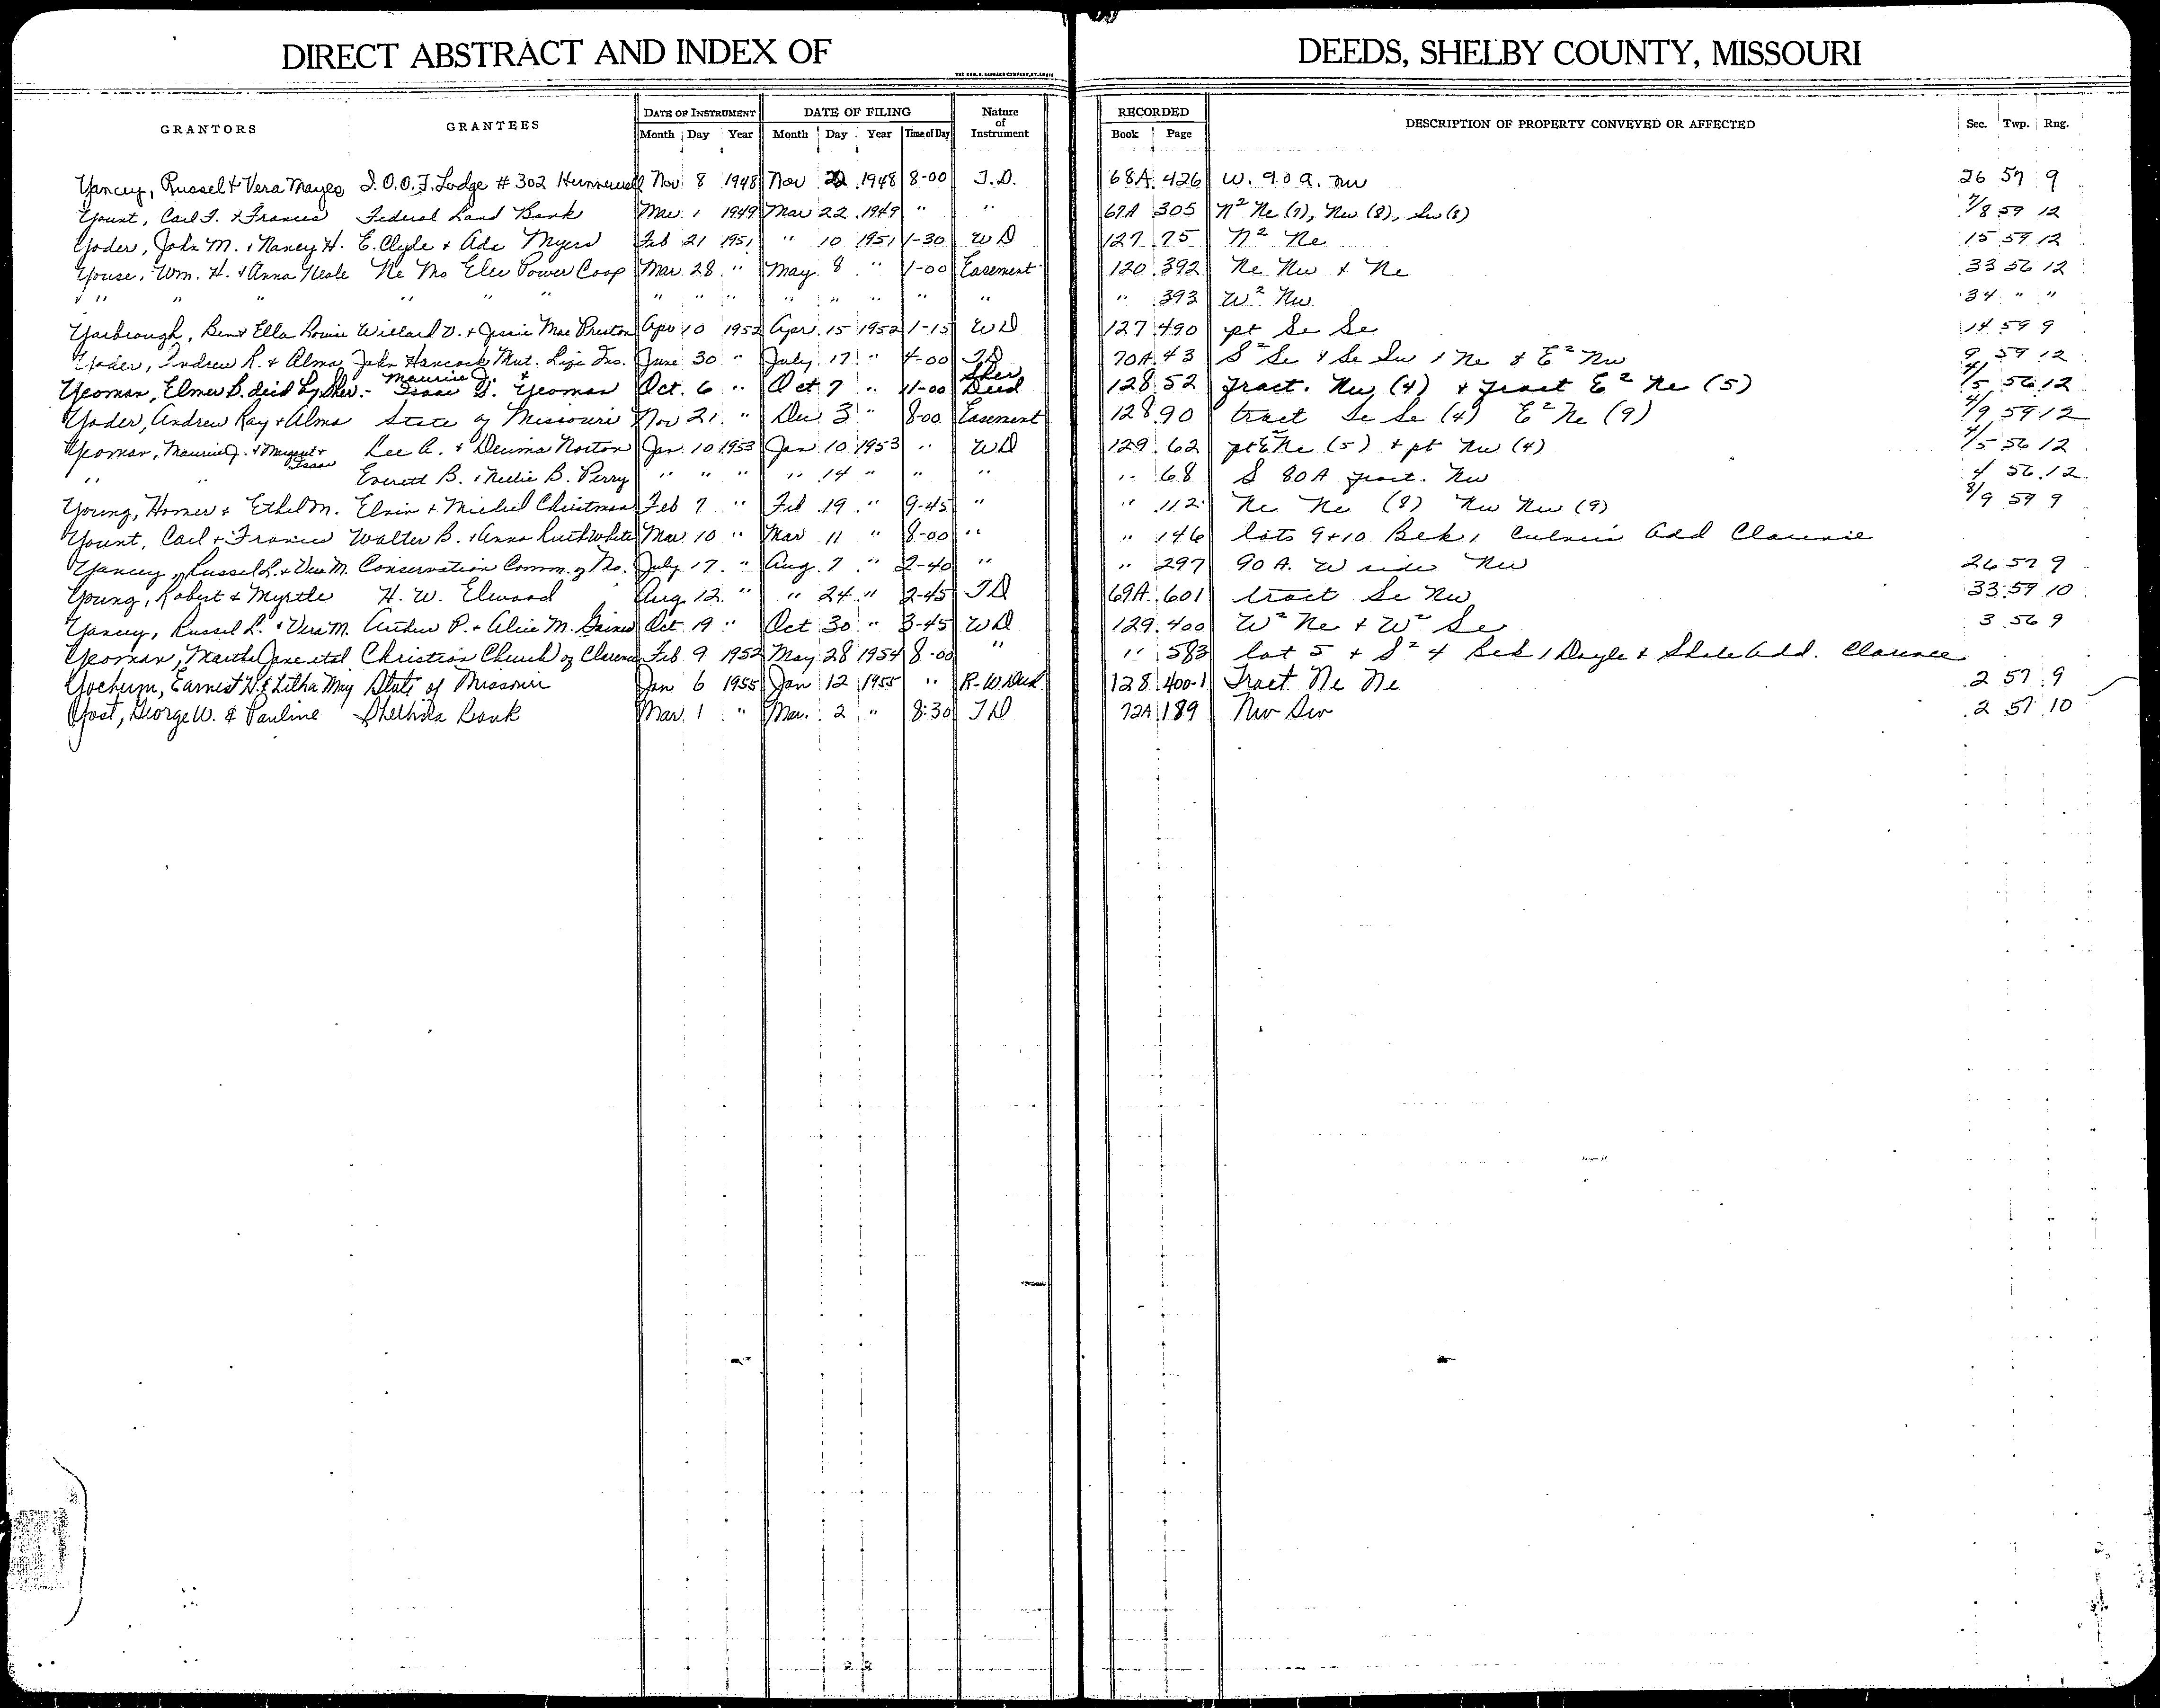 DIRECT ABSTRACT AND INDEX OF DEEDS, SHELBY COUNTY, MISSOURI
GRANTORS GRANTEES DATE OF INSTRUMENT DATE OF FILING Nature of Instrument RECORDED DESCRIPTION OF PROPERTY CONVEYED OR AFFECTED Sec. Twp. Rng.
Month Day Year Month Day Year Time of Day Book Page
Yancey, Russel & Vera Mayes I.O.O.F. Lodge # 302 Hunnewell Nov 8 1948 Nov 1948 8-00 T.D. 68A 426 W. 90 a. nw 26 57 9
Yount, Carl F. & Frances Federal Land Bank Mar 1 1949 Mar 22 1949 " " 67A 305 N² Ne (7), Nw (8), Sw (8) 7/8 59 12
Yoder, John M. & Nancy H. E. Clyde & Ada Myers Feb 21 1951 " 10 1951 1-30 WD 127 75 N² Ne 15 59 12
Youse, Wm. H. & Anna Neale Ne Mo Elec Power Coop Mar 28 " May 8 " 1-00 Easement 120 392 Ne Nw & Ne 33 56 12
" " " " " " " " " " " " " " 393 W² Nw 34 " "
Yarbrough, Ben & Ella Louise Willard V. & Jessie Mae Preston Apr 10 1952 Apr 15 1952 1-15 WD 127 490 pt Se Se 14 59 9
Yoder, Andrew R. & Alma John Hancock Mut. Life Ins. June 30 " July 17 " 4-00 TD 70A 43 S² Se & Se Sw & Ne & E² Nw 9 59 12
Yeoman, Elmer B. decd by Sher.- Maurice J. & Isaac D. Yeoman Oct. 6 " Oct 7 " 11-00 Sher Deed 128 52 fract. Nw (4) & fract E² Ne (5) 4/5 56 12
Yoder, Andrew Ray & Alma State of Missouri Nov 21 " Dec 3 " 8-00 Easement 128 90 tract Se Se (4) E² Ne (9) 4/9 59 12
Yeoman, Maurice J. & Margaret & Isaac Lee A. & Decima Norton Jan 10 1953 Jan 10 1953 " WD 129 62 pt E² Ne (5) & pt Nw (4) 4/5 56 12
" " Everett B. & Nellie B. Perry " " " " 14 " " " " 68 S 80A fract. Nw 4 56 12
Young, Homer & Ethel M. Elvin & Christman Feb 7 " Feb 19 " 9-45 " " 112 Ne Ne (8) Nw Nw (9) 8/9 59 9
Yount, Carl & Frances Walter B. & Anna Ruth White Mar 10 " Mar 11 " 8-00 " " 146 lots 9+10 Blk 1 Add Clarence
Yancey, Russel L. & Vera M. Conservation Comm. of Mo. July 17 " Aug. 7 " 2-40 " " 297 90 A. W side Nw 26 57 9
Young, Robert & Myrtle H. W. Elwood Aug 12 " " 24 " 2-45 TD 69A 601 tract Se Nw 33 59 10
Yancey, Russel L. & Vera M. Arthur P. & Alice M. Gaines Oct 19 " Oct 30 " 3-45 WD 129 400 W² Ne & W² Se 3 56 9
Yeoman, Martha Jane et al Christian Church of Clarence Feb 9 1952 May 28 1954 8-00 " " 583 lot 5 & S² 4 Blk 1 Doyle & Add. Clarence
Yochum, Earnest H. & Litha May State of Missouri Jan 6 1955 Jan 12 1955 " R-W Deed 128 400-1 Tract Ne Ne 2 57 9
Yost, George W. & Pauline Shelbina Bank Mar. 1 " Mar. 2 " 8:30 TD 72A 189 Nw Sw 2 57 10